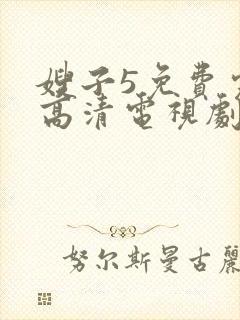 嫂子5免費
高清電視劇
努尔斯曼古麗